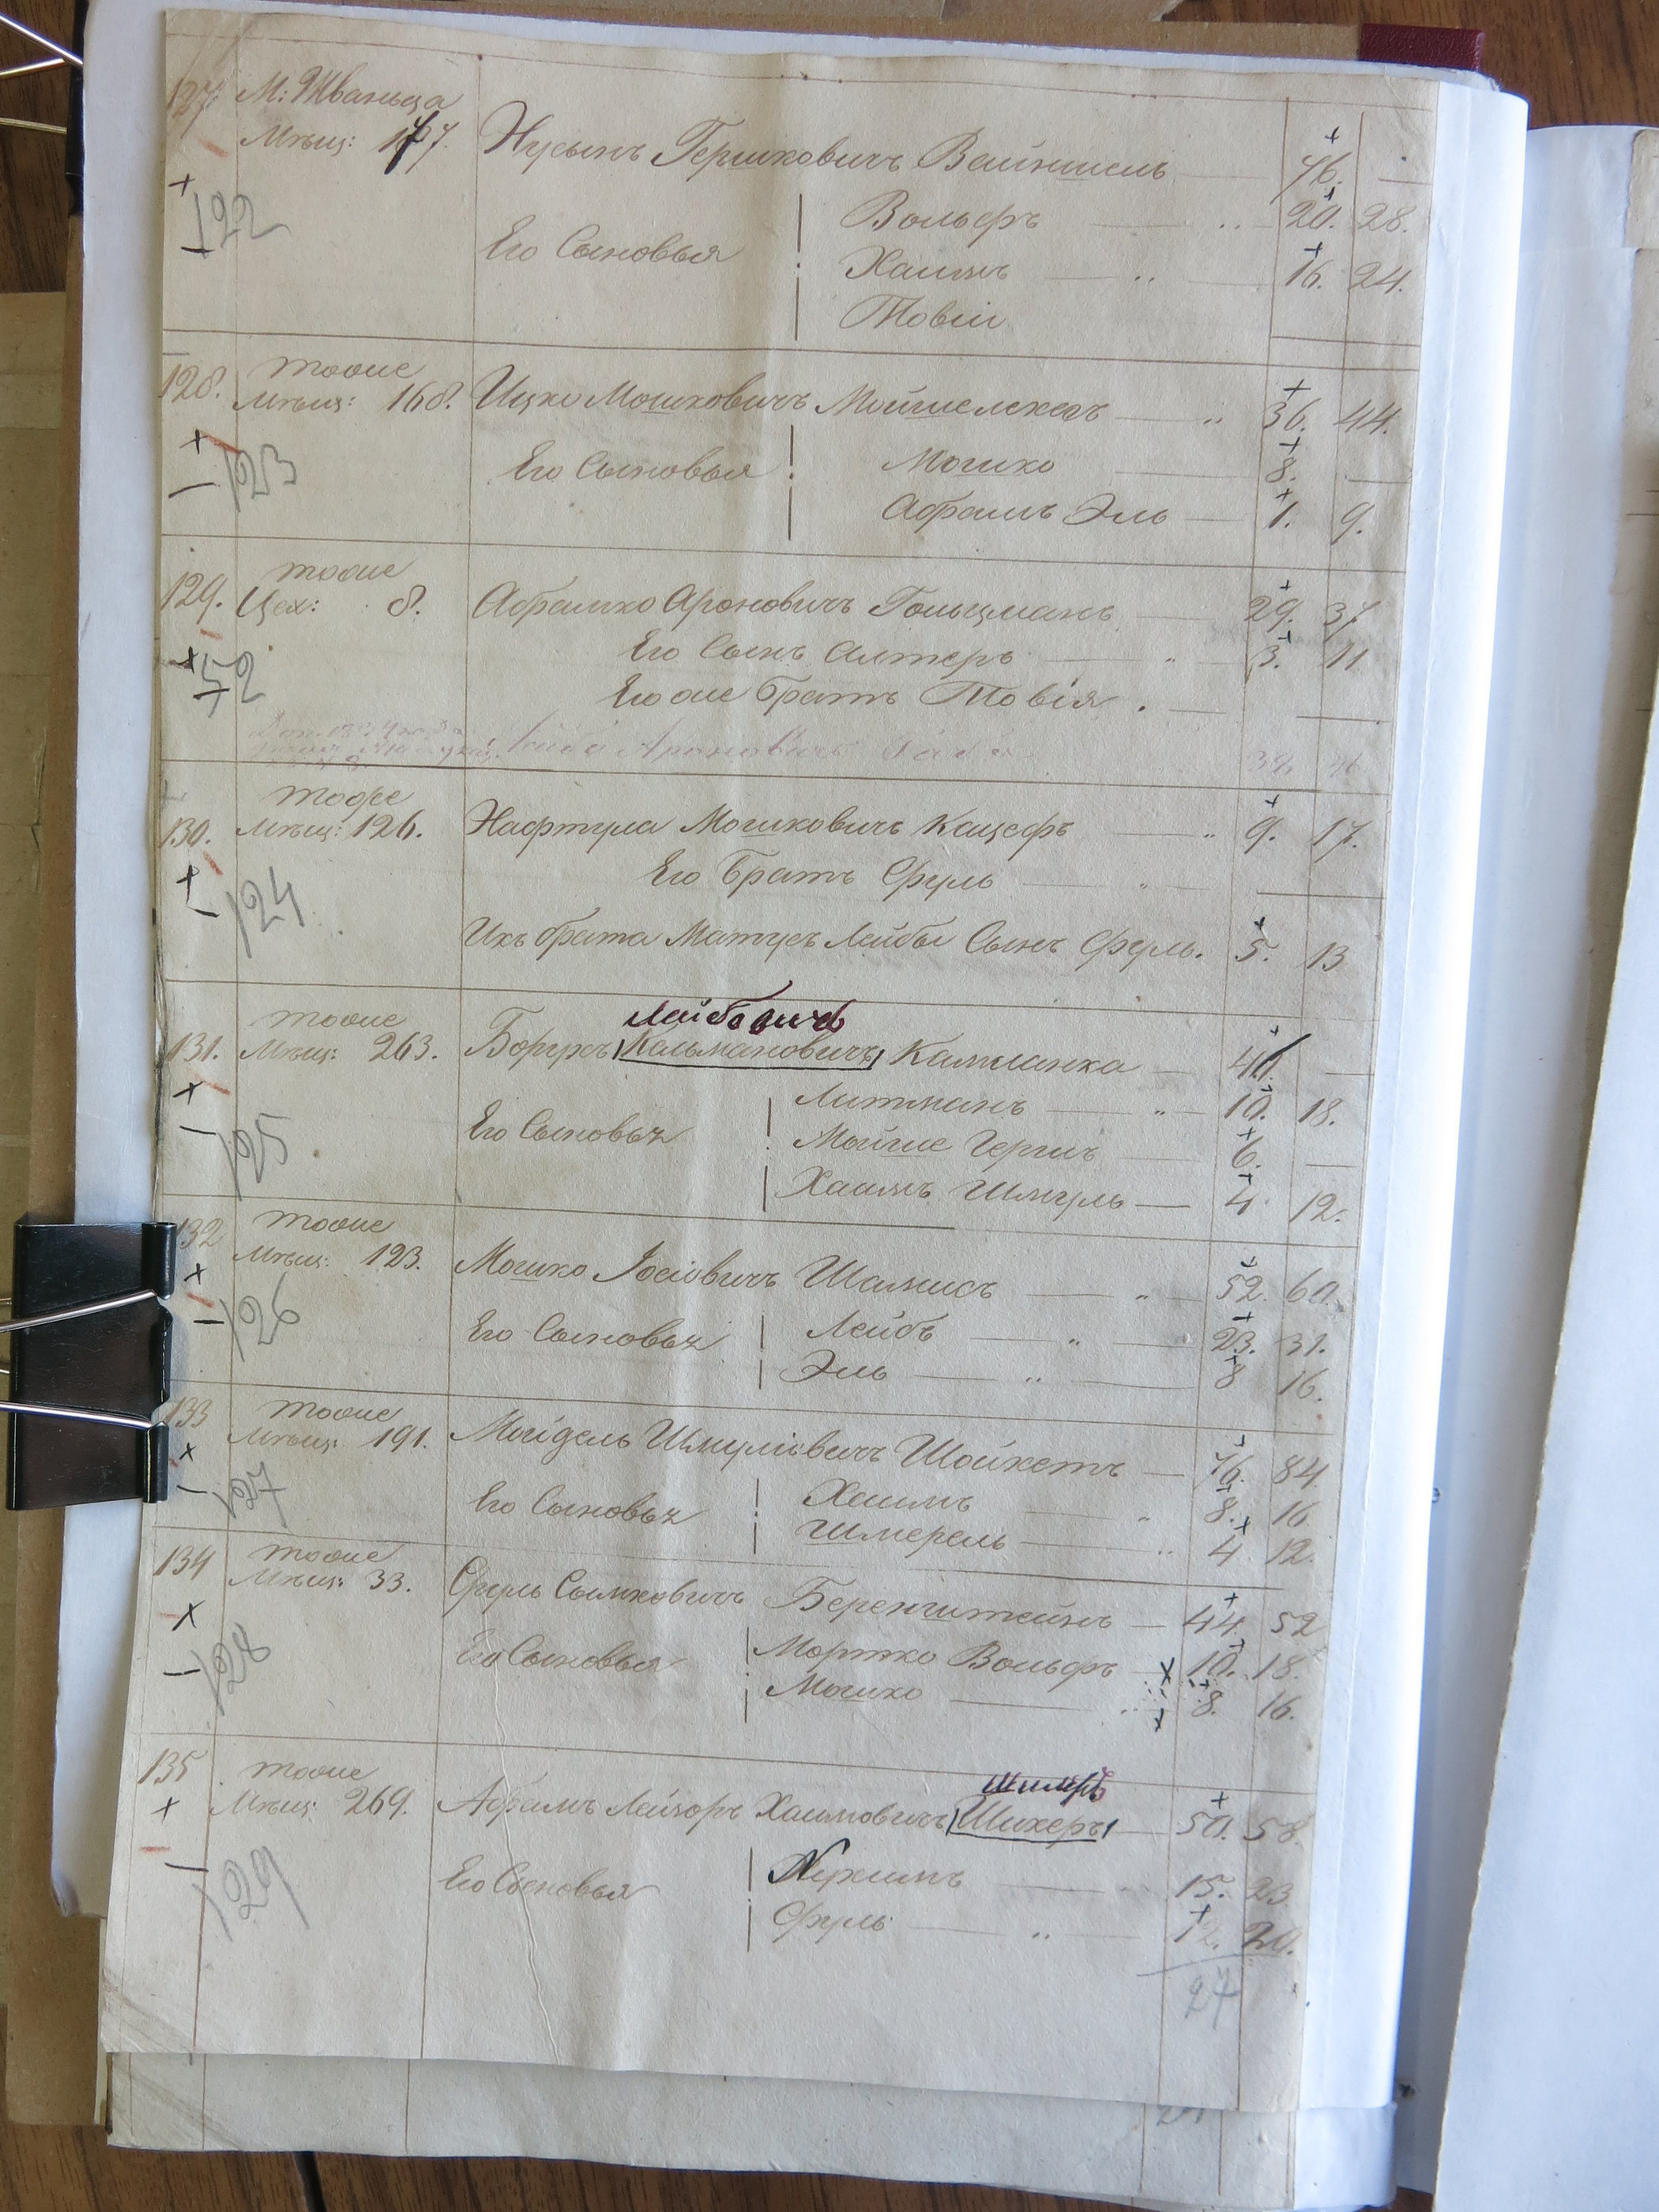 127. М: Жванеца
Мѣщ: 177. Нусынъ Гершковичъ Вайншель 76. —
122
Вольфъ 20. 28.
Его Сыновья
Хаимъ 16. 24.
Товiи
128. тоже
Мѣщ: 168. Ицко Мошковичъ Мошелекесъ 36. 44.
123
Его Сыновья Мошко 8. —
Абрамъ Эль 1. 9.
129. тоже
Цех: 8. Абрамко Ароновичъ Гольцманъ 29. 37
Его Сынъ Алтеръ 3. 11
52
Его же братъ Товiя. —
Лейба Ароновичъ
130. тоже
Мѣщ: 126. Нафтула Мошковичъ Кацефъ 9. 17.
Его братъ Сруль —
124
Ихъ брата Матусъ Лейбы Сынъ Сруль. 5. 13
Лейбовичъ
131. тоже
Мѣщ: 263. Борухъ Кальмановичъ Камианка —
Литманъ 10. 18.
Его Сыновья Мойше Гершъ 6. —
125
Хаимъ Шмуль 4. 12.
132 тоже
Мѣщ: 123. Мошко Iосiовичъ Шамисъ 52. 60.
126
Его Сыновья Лейбъ 23. 31.
Эль 8 16.
133 тоже
Мѣщ: 191. Мойдель Шмулiовичъ Шойхетъ 76. 84
127
Его Сыновья Хаимъ 8. 16
Шмерель 4 12.
134 тоже
Мѣщ: 33. Сруль Сымховичъ Беренштейнъ 44. 52
128
Его Сыновья Мортко Вольфъ 10. 18.
Мошко 8. 16.
135 тоже
Шмиръ
Мѣщ: 269. Абрамъ Лейзоръ Хаимовичъ Шихеръ 50. 58.
129
Его Сыновья Нухимъ 15. 23
Сруль 12. 20.
27